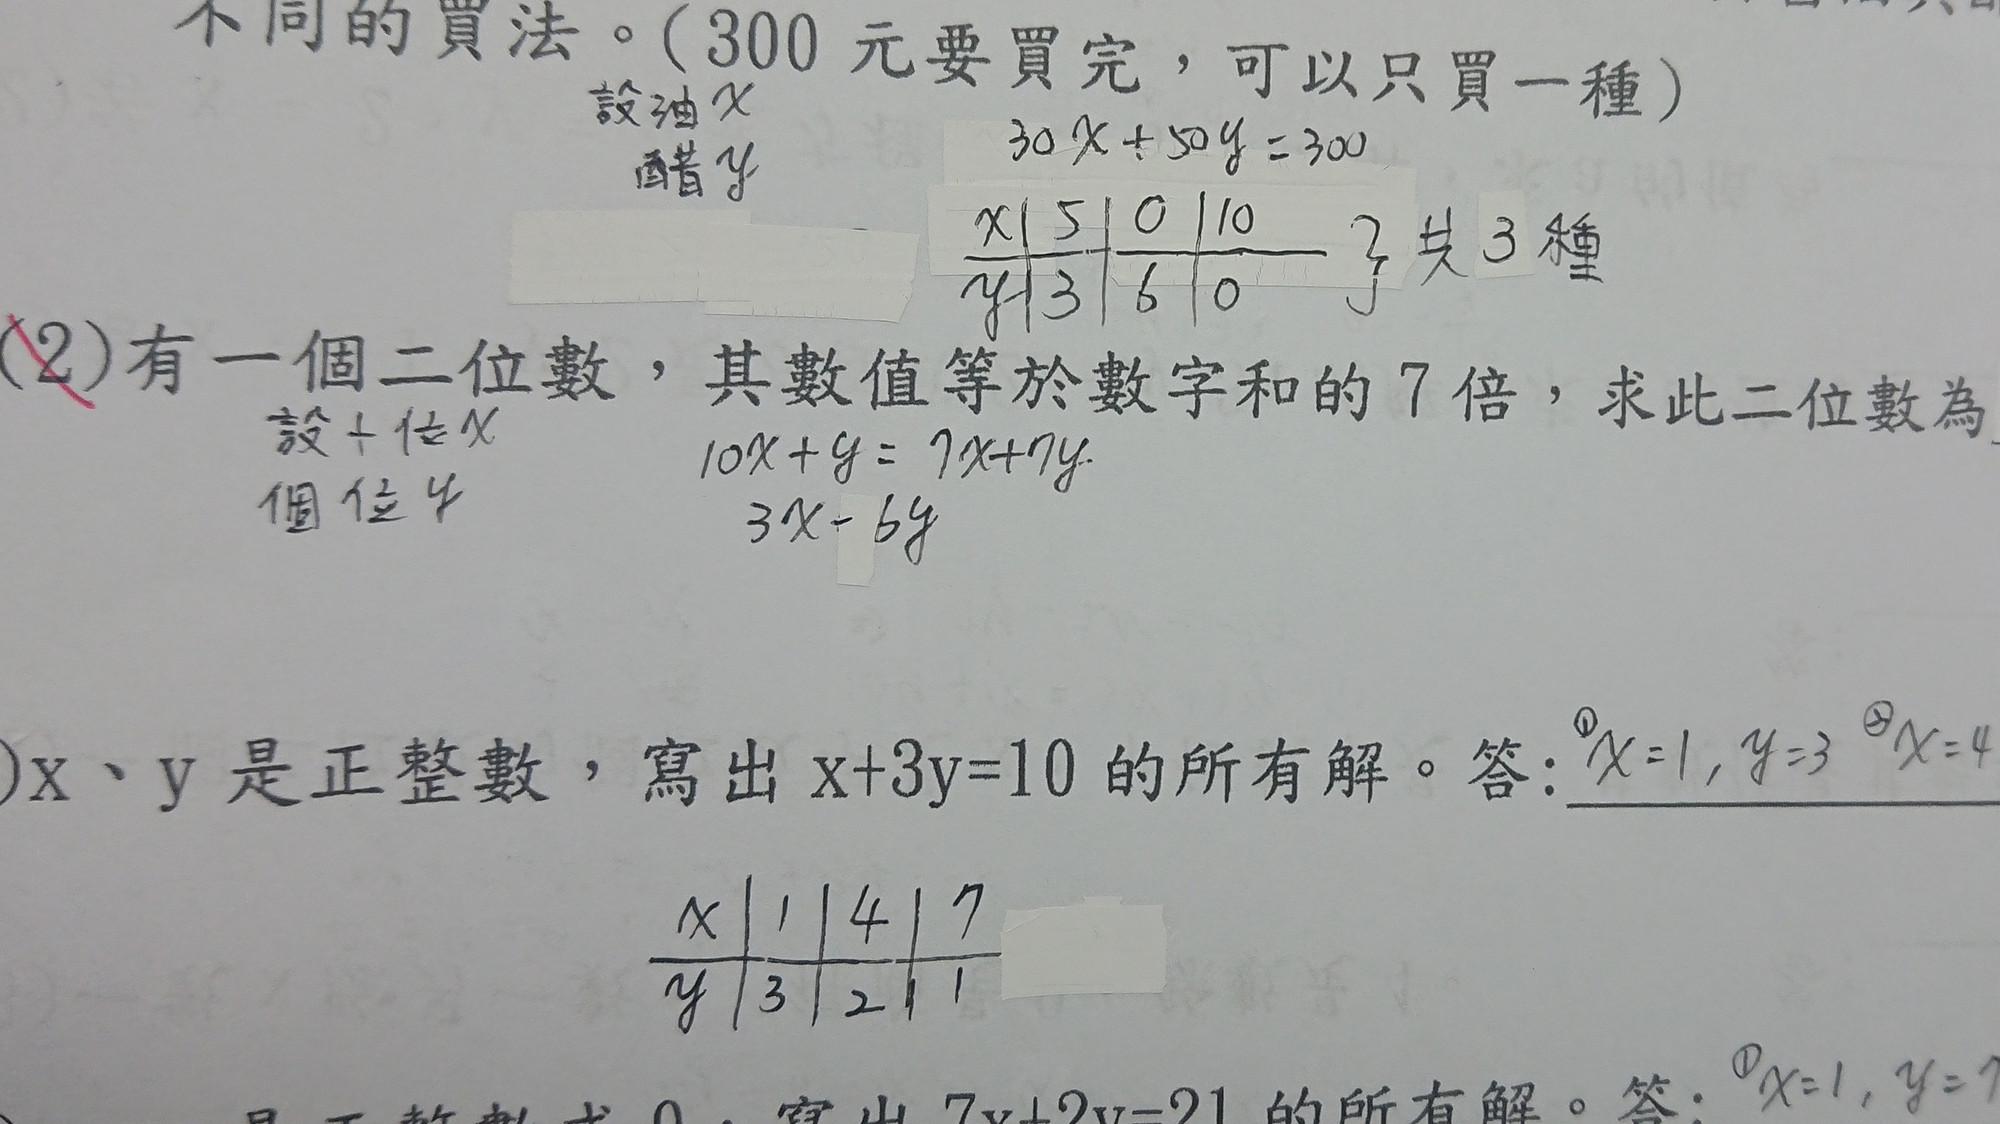 不同的買法。(300 元要買完，可以只買一種)
設油 x
醋 y
30x+50y=300
x 5 0 10
y 3 6 0
} 共 3 種
(2)有一個二位數，其數值等於數字和的 7 倍，求此二位數為
設十位 x
個位 y
10x+y=7x+7y
3x-6y
)x、y 是正整數，寫出 x+3y=10 的所有解。答:①x=1, y=3 ②x=4
x 1 4 7
y 3 2 1
是正整數或 0，寫出 7x+2y=21 的所有解。答:①x=1, y=7